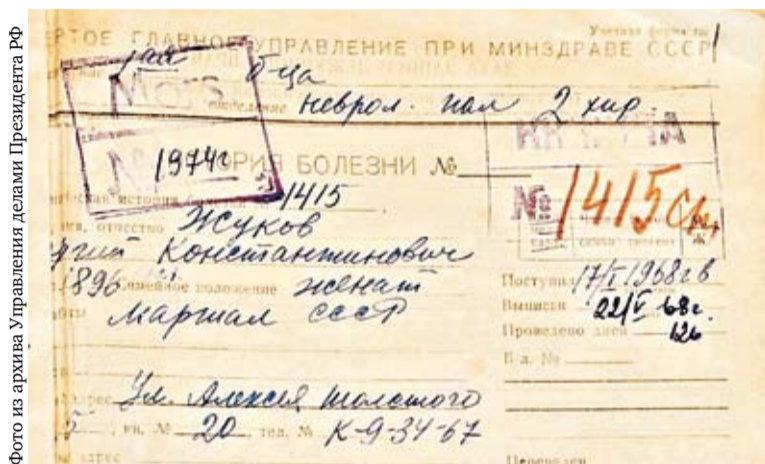 Фото из архива Управления делами Президента РФ
Учетная форма №1
ЕРТОЕ ГЛАВНОЕ УПРАВЛЕНИЕ ПРИ МИНЗДРАВЕ СССР
б-ца
отделение неврол. пал 2 хир.
№ 1974г
РИЯ БОЛЕЗНИ №
1415
№ 1415
отчество Жуков
ргий Константинович
1896 Семейное положение женат
Маршал СССР
Поступил 17/I 1968г в
Выписан 22/V 68г.
Проведено дней 126
Б/л. №
адрес Ул. Алексея Толстого
5, кв. № 20, тел. № К-9-34-67
адрес
Переведен